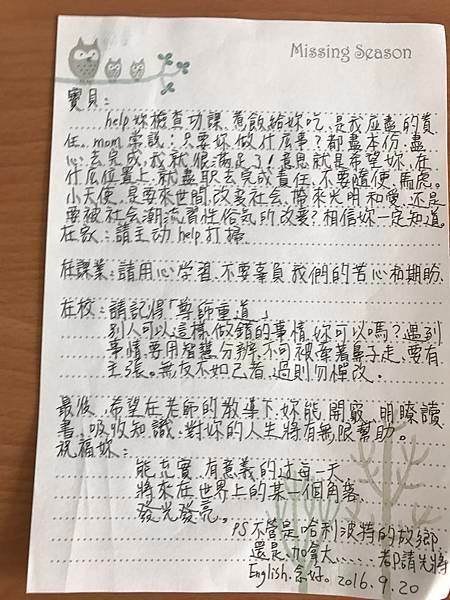 Missing Season
寶貝：
help 妳檢查功課、煮飯給妳吃、是我應盡的責
任。mom 常說：只要妳做什麼事？都盡本份、盡
心、去完成，我就很滿足了！意思就是希望妳，在
什麼位置上，就盡職去完成責任、不要隨便、馬虎。
小天使，是要來世間，改善社會，帶來光明和愛，還是
要被社會潮流習性俗氣的改變？相信妳一定知道。
在家：請主動 help 打掃
在課業：請用心學習，不要辜負我們的苦心和期盼。
在校：請記得「尊師重道」
別人可以這樣做錯的事情，妳可以嗎？遇到
事情、要用智慧分辨、不可被牽著鼻子走、要有
主張。無友不如己者、過則勿憚改。
最後、希望在老師的教導下，妳能，開竅，明瞭讀
書、吸收知識，對妳的人生將有無限幫助。
祝福妳：
能充實、有意義的过每一天
將來在世界上的某一個角落
發光發亮。
PS 不管是哈利波特的故鄉
還是加拿大……都請先將
English 念好。2016.9.20